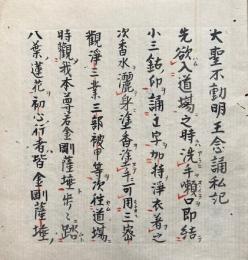 大聖不動明王念誦私記
先欲入道場之時洗手嗽口即結
小三鈷印誦 字加持淨衣著之
次香水灑身塗香塗手可用三密
觀淨三業三部被甲等次往道場
時觀我本尊若金剛薩埵步々踏
八葉蓮花初心行者皆金剛薩埵